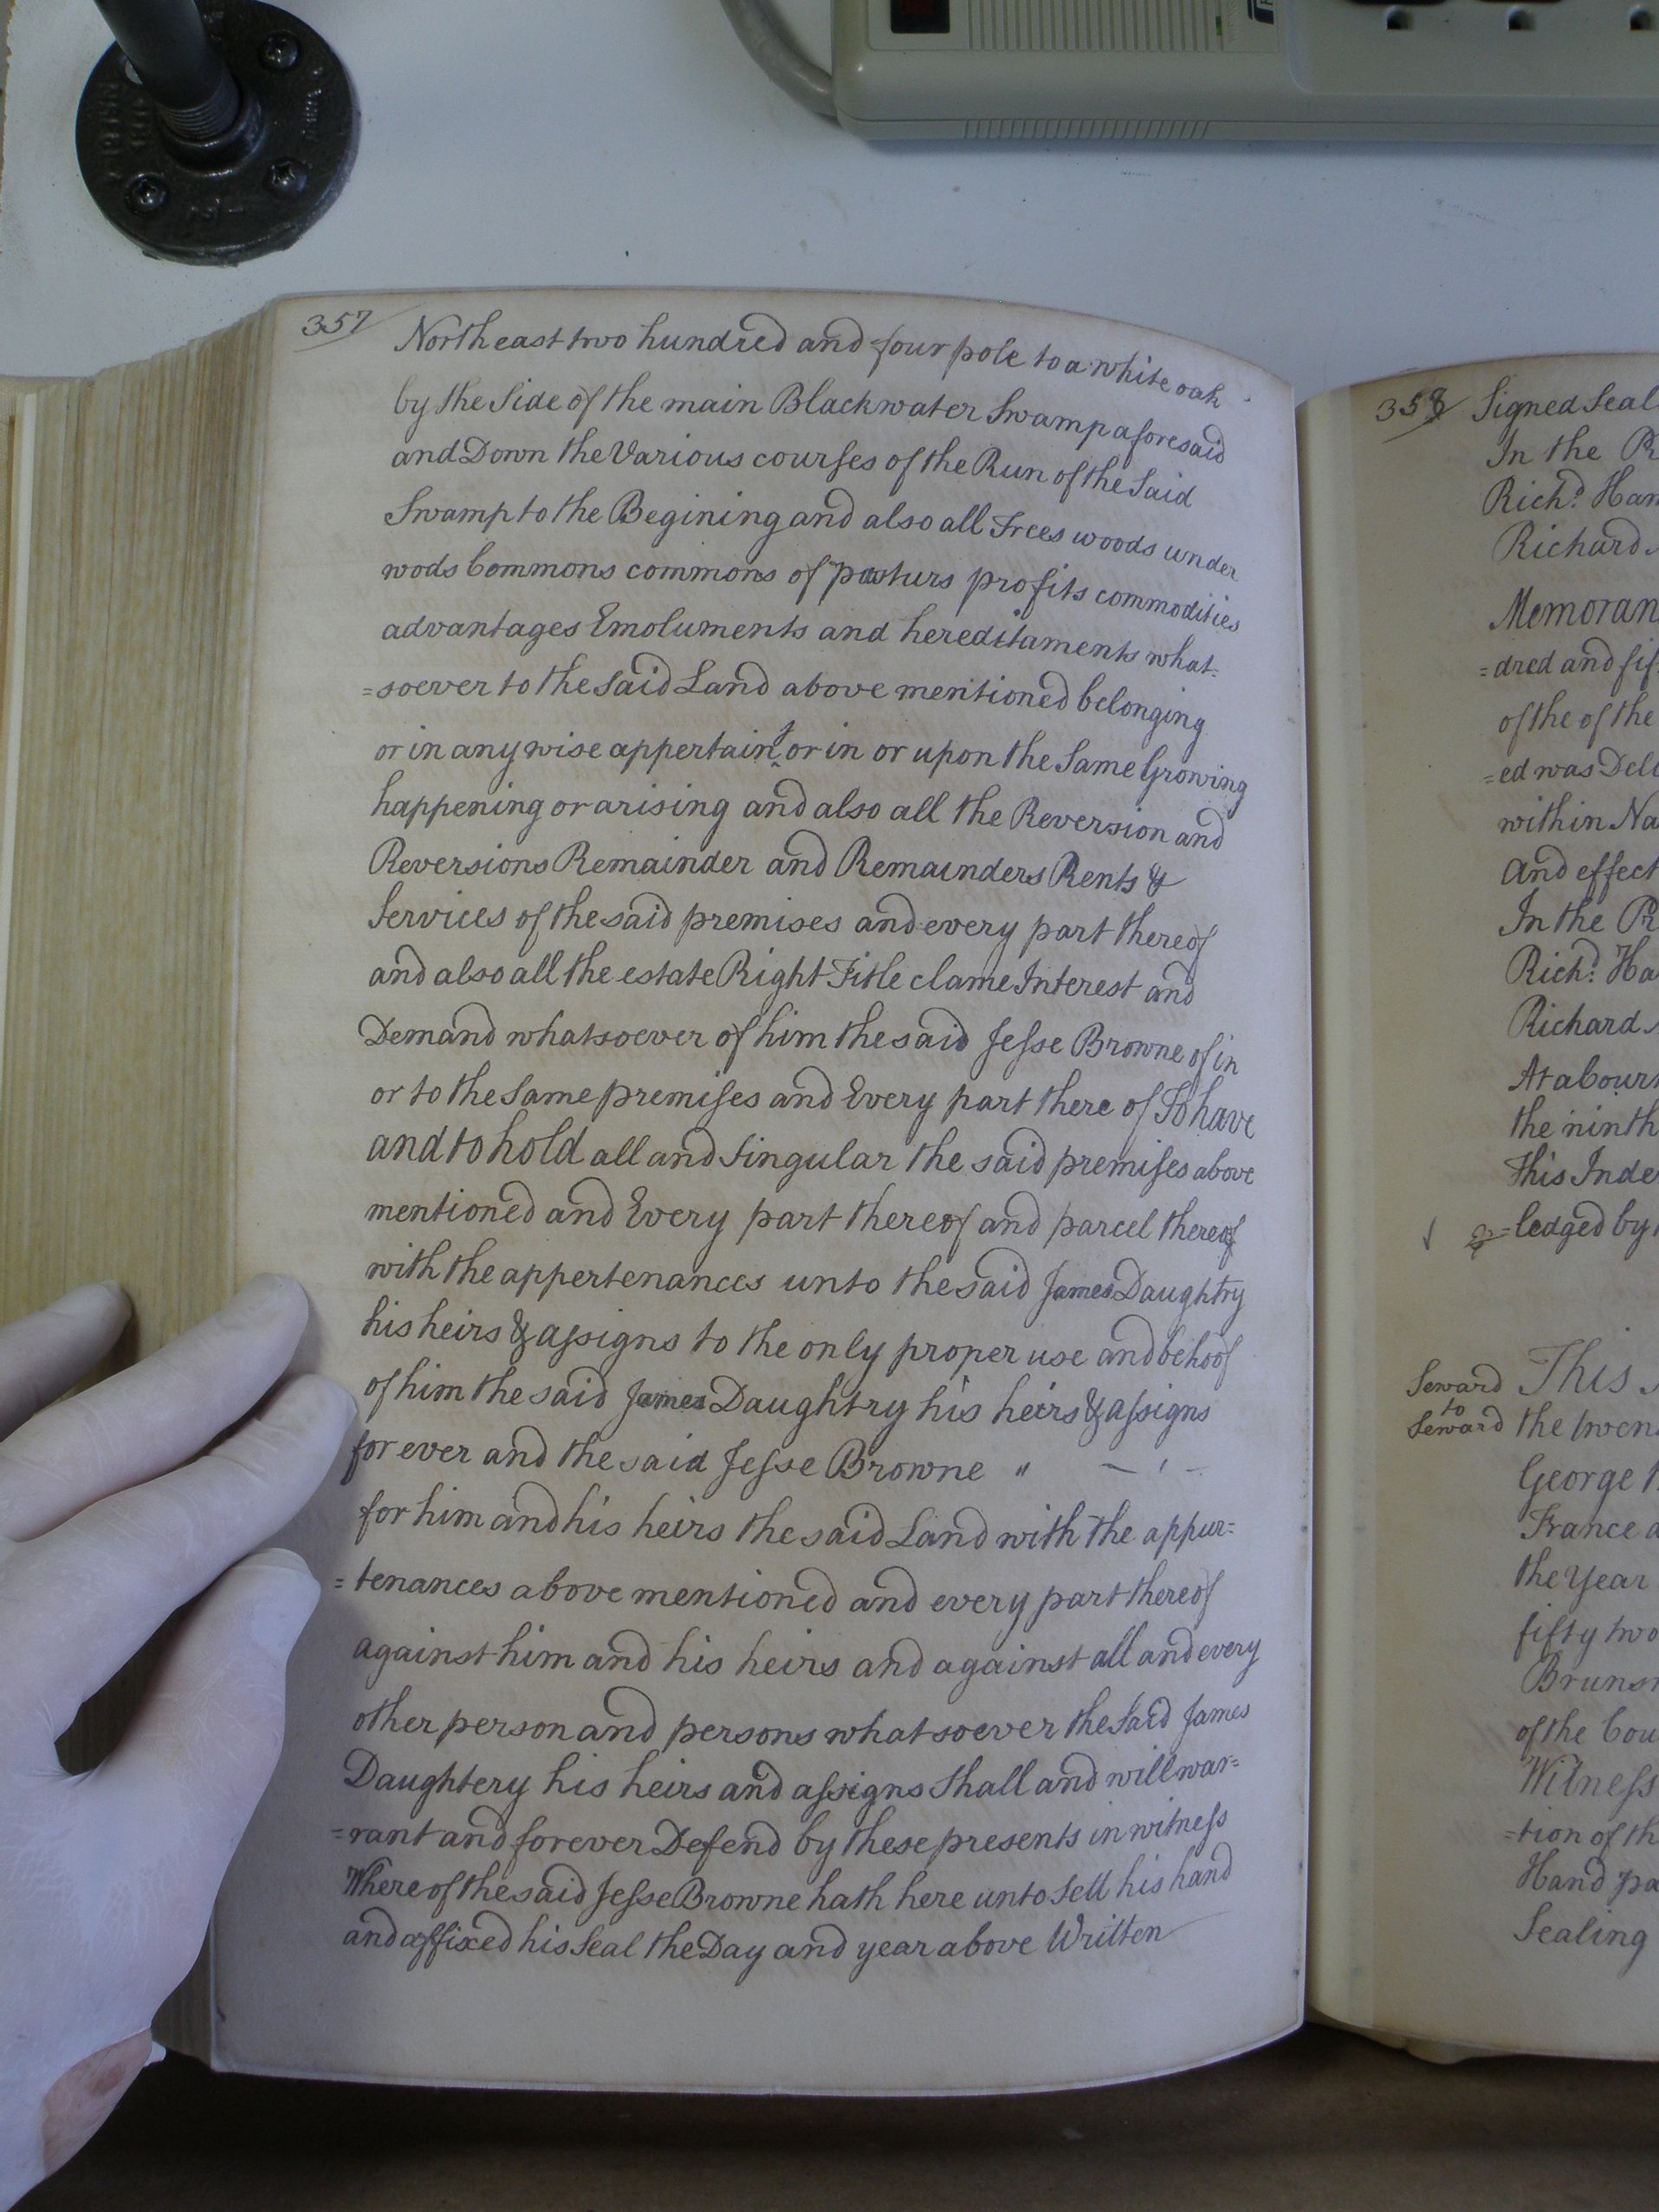 357
Northeast two hundred and four pole to a white oak
by the Side of the main Blackwater Swamp aforesaid
and Down the Various courses of the Run of the Said
Swamp to the Begining and also all Trees woods under
wods Commons commons of pasturs profits commodities
advantages Emoluments and hereditaments what-
=soever to the Said Land above mentioned belonging
or in any wise appertaint or in or upon the Same Growing
happening or arising and also all the Reversion and
Reversions Remainder and Remainders Rents &
Services of the said premises and every part thereof
and also all the estate Right Title clame Interest and
Demand whatsoever of him the said Jesse Browne of in
or to the Same premises and Every part there of To have
and to hold all and Singular the said premises above
mentioned and Every part thereof and parcel thereof
with the appertenances unto the said James Daughtry
his heirs & assigns to the only proper use and behoof
of him the said James Daughtry his heirs & assigns
for ever and the said Jesse Browne " — ' -
for him and his heirs the said Land with the appur=
=tenances above mentioned and every part thereof
against him and his heirs and against all and every
other person and persons whatsoever the Said James
Daughtery his heirs and assigns Shall and will war=
=rant and forever Defend by these presents in witness
Where of the said Jesse Browne hath here unto Sett his hand
and affixed his Seal the Day and year above Written
358 Signed Seal
In the
Richd. Han
Richard
Memoran
=dred and fif
of the of the
=ed was Deli
within Na
And effect
In the
Richd. Ha
Richard
At a Cour
the ninth
This Inde
=ledged by
Seward
to
Seward
This
the twen
George
France a
the Year
fifty two
Bruns
of the Cou
Witness
=tion of th
Hand pa
Sealing